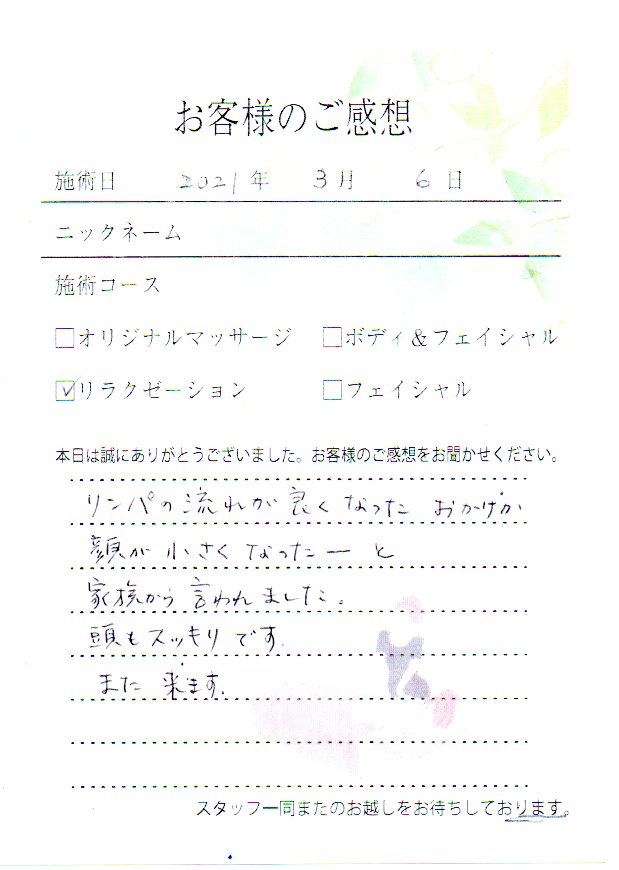 お客様のご感想
施術日 2021年 3月 6日
ニックネーム
施術コース
□オリジナルマッサージ □ボディ＆フェイシャル
☑リラクゼーション □フェイシャル
本日は誠にありがとうございました。お客様のご感想をお聞かせください。
リンパの流れが良くなった おかげか
顔が小さくなったーと
家族から言われました。
頭もスッキリです.
また来ます.
スタッフ一同またのお越しをお待ちしております。